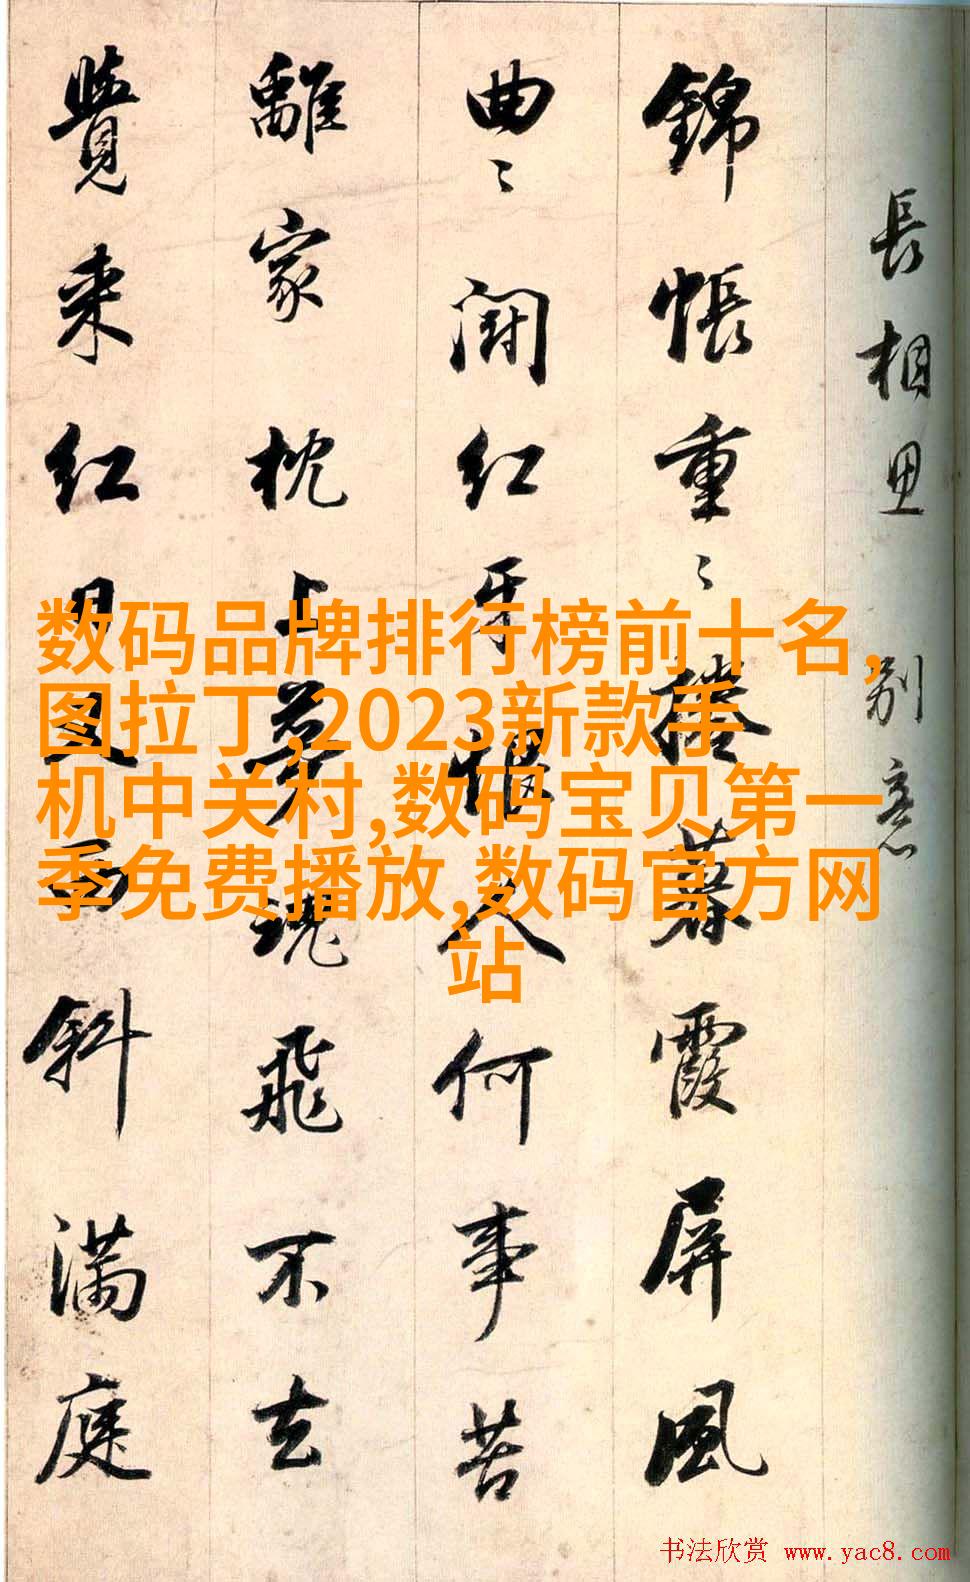 長相思 別意
錦帳重〻捲暮霞屏風
曲〻鬪紅牙恨人何事苦
離家枕上夢魂飛不去
覺來紅日又西斜滿庭
数码品牌排行榜前十名,
图拉丁,2023新款手
机中关村,数码宝贝第一
季免费播放,数码官方网
站
书法欣赏 www.yac8.com